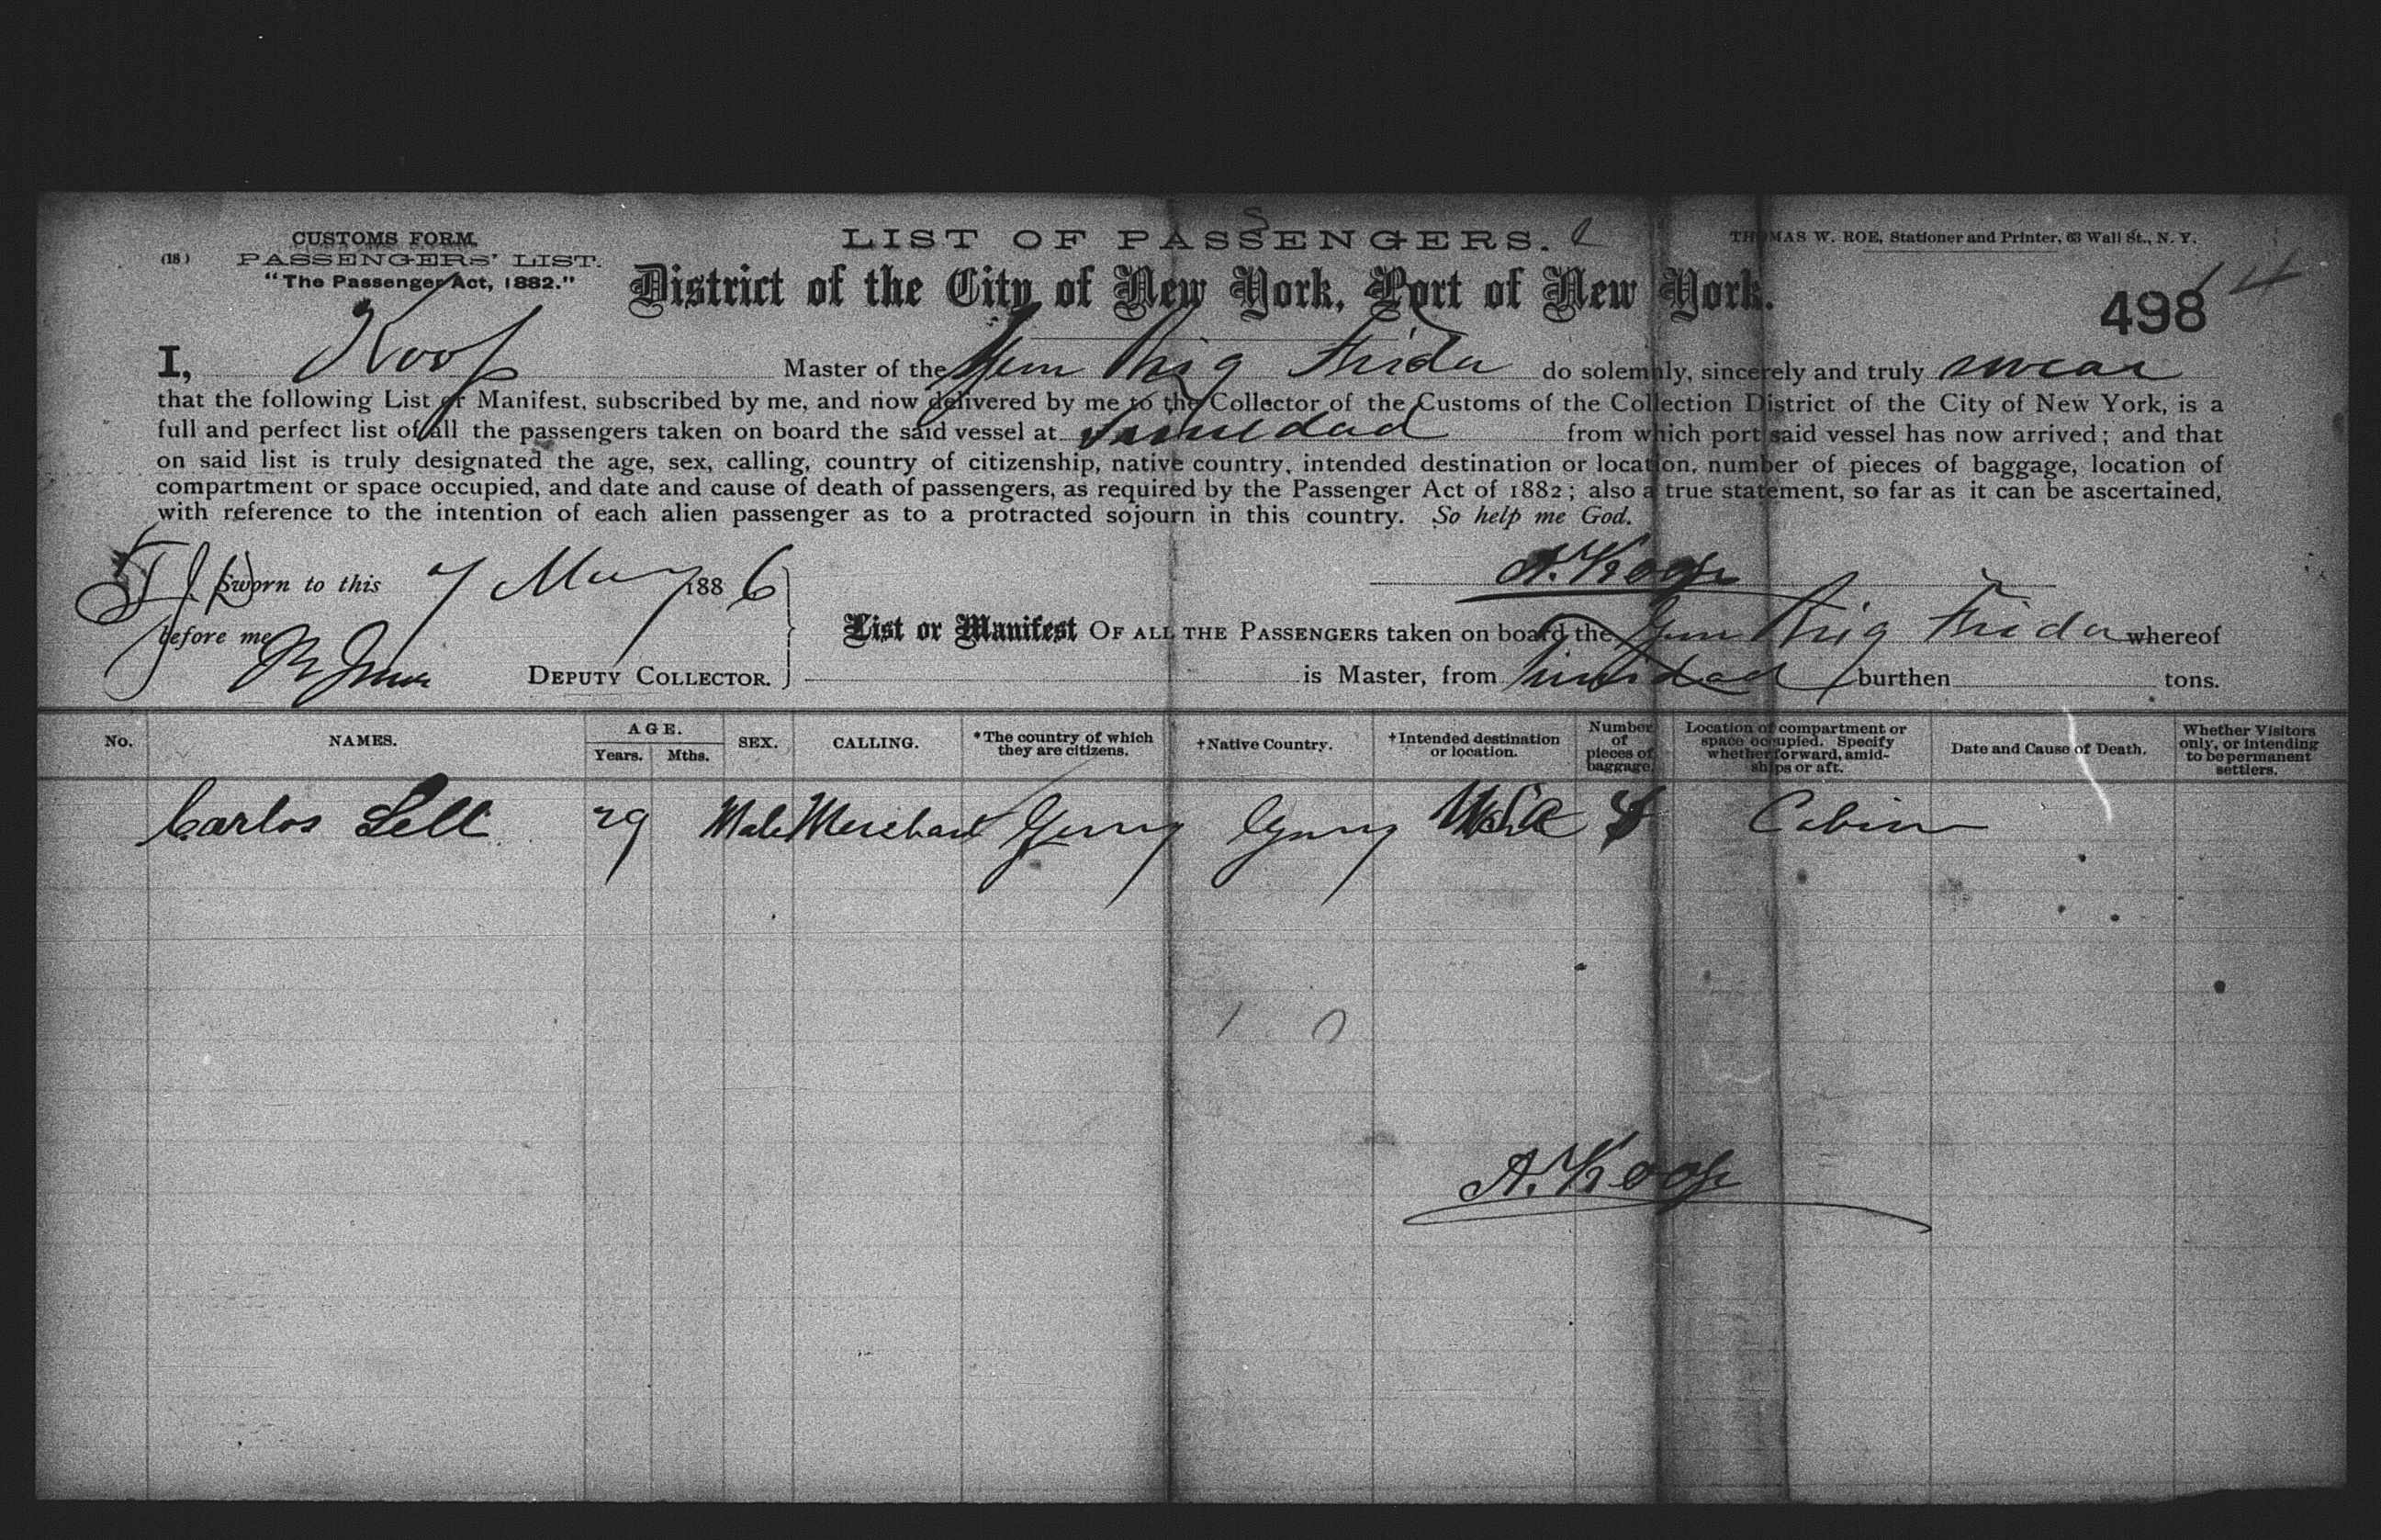 CUSTOMS FORM.
(18) PASSENGERS' LIST.
"The Passenger Act, 1882."
LIST OF PASSENGERS.
THOMAS W. ROE, Stationer and Printer, 63 Wall St., N. Y.
District of the City of New York, Port of New York.
498
14
I, Koop Master of the Brig Frida do solemnly, sincerely and truly swear
that the following List or Manifest, subscribed by me, and now delivered by me to the Collector of the Customs of the Collection District of the City of New York, is a
full and perfect list of all the passengers taken on board the said vessel at Trinidad from which port said vessel has now arrived; and that
on said list is truly designated the age, sex, calling, country of citizenship, native country, intended destination or location, number of pieces of baggage, location of
compartment or space occupied, and date and cause of death of passengers, as required by the Passenger Act of 1882; also a true statement, so far as it can be ascertained,
with reference to the intention of each alien passenger as to a protracted sojourn in this country. So help me God.
A. Koop
Sworn to this 7 May 1886
before me
DEPUTY COLLECTOR.
List or Manifest OF ALL THE PASSENGERS taken on board the Brig Frida whereof
is Master, from Trinidad burthen tons.
No. NAMES. AGE. Years. Mths. SEX. CALLING. *The country of which they are citizens. †Native Country. †Intended destination or location. Number of pieces of baggage. Location of compartment or space occupied. Specify whether forward, amidships or aft. Date and Cause of Death. Whether Visitors only, or intending to be permanent settlers.
Carlos Sell 29 Male Merchant Gerny Gerny USA Cabin
1 0
A. Koop